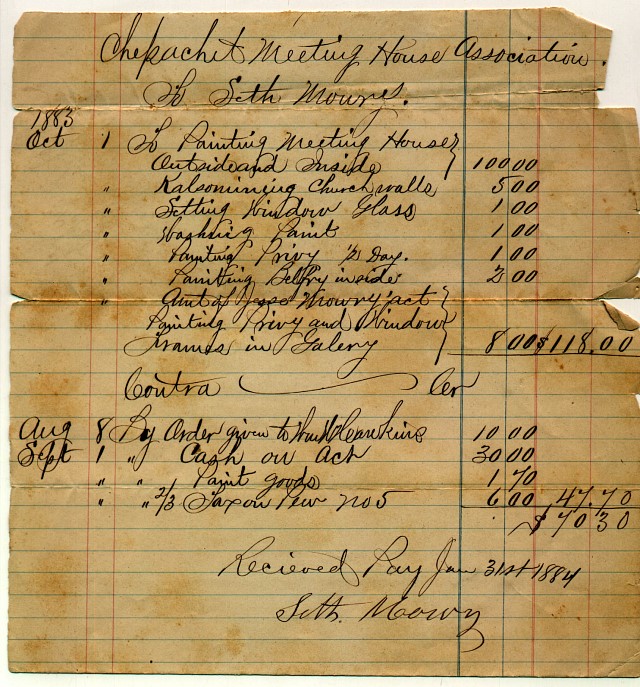 Chepachit Meeting House Association.
To Seth Mowry.
1883
Oct 1 To Painting Meeting House
Outside and Inside 100 00
" Kalsomining Church walls 5 00
" Setting Window Glass 1 00
" Washing Paint 1 00
" Painting Privy 1/2 Day. 1 00
" Painting Belfry inside 2 00
" Amt of Jesse Mowry act
Painting Privy and Window
Frames in Galery 8 00 $118.00
Contra Cr
Aug 8 By Order given to 10 00
Sept 1 " Cash on Act 30 00
" " Paint goods 1 70
" " 2/3 Tax on Pew No 5 6 00 47.70
$70 30
Recieved Pay Jan 31st 1884
Seth. Mowry